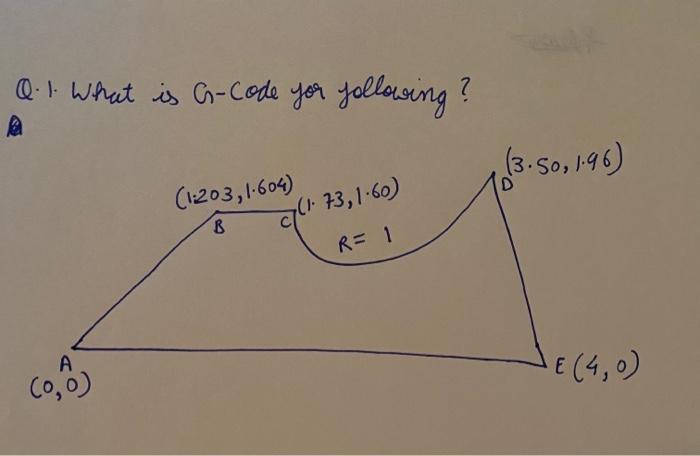 Q.1. What is G-Code for following?
(3.50, 1.96)
D
(1.203, 1.604)
(1.73, 1.60)
B
C
R= 1
A
(0,0)
E (4,0)